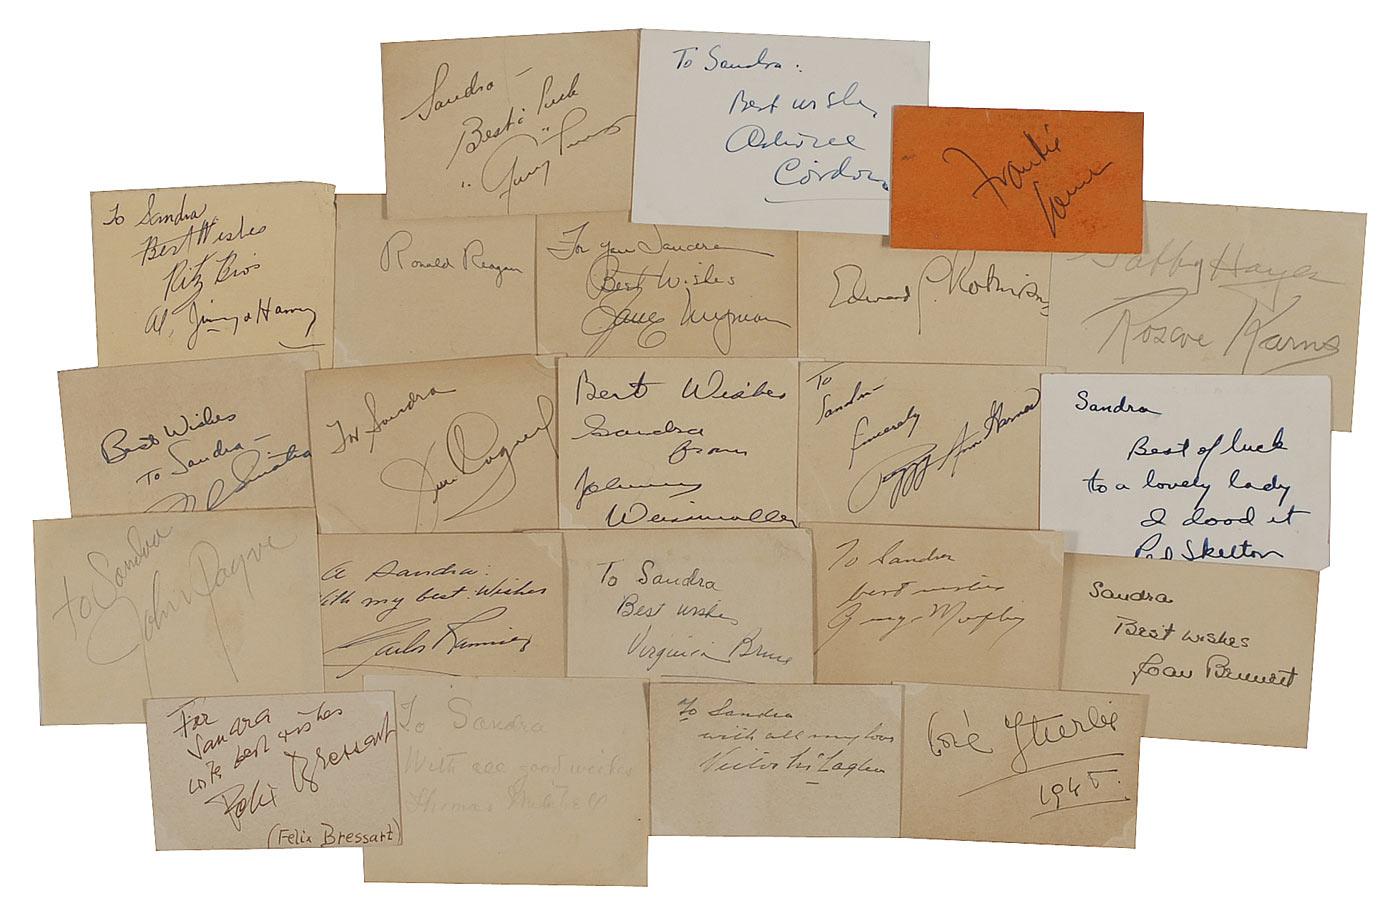 Sandra —
Best: luck
"Gary"
To Sandra:
Best wishes
Cordova
Frankie
To Sandra
Best Wishes
Ritz Bros
Al, Jimmy & Harry
Ronald Reagan
For you Sandra
Best Wishes
Jane Wyman
Edward G. Robinson
Gabby Hayes
Roscoe Karns
Best Wishes
To Sandra —
Sinatra
For Sandra
Best Wishes
Sandra
from
Johnny
Weissmuller
To
Sandra
Sincerely
Peggy Ann Garner
Sandra
Best of luck
to a lovely lady
I dood it
Red Skelton
to Sandra
John Payne
A Sandra:
With my best wishes
Carlos Ramirez
To Sandra
Best wishes
Virginia Bruce
To Sandra
best wishes
George Murphy
Sandra
Best wishes
Joan Bennett
For
Sandra
with best wishes
Felix Bressart
(Felix Bressart)
To Sandra
With all good wishes
Thomas Mitchell
To Sandra
with all my love
Victor McLaglen
José Iturbi
1945.